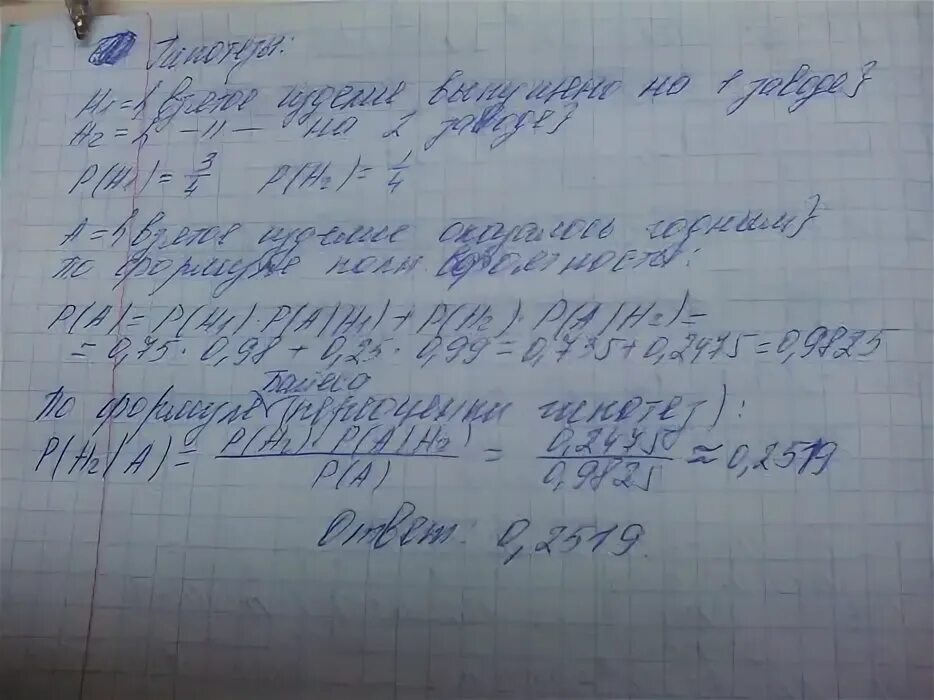 Гипотезы:
H₁ = {взятое изделие выпущено на 1 заводе}
H₂ = { –11– на 2 заводе}
P(H₁) = 3/4 P(H₂) = 1/4
A = {взятое изделие оказалось годным}
По формуле полн. вероятности:
P(A) = P(H₁)·P(A|H₁) + P(H₂)·P(A|H₂) =
= 0,75 · 0,98 + 0,25 · 0,99 = 0,735 + 0,2475 = 0,9825
Байеса
По формуле (переоценки гипотез):
P(H₂|A) = P(H₂)·P(A|H₂) / P(A) = 0,2475 / 0,9825 ≈ 0,2519
Ответ: 0,2519.